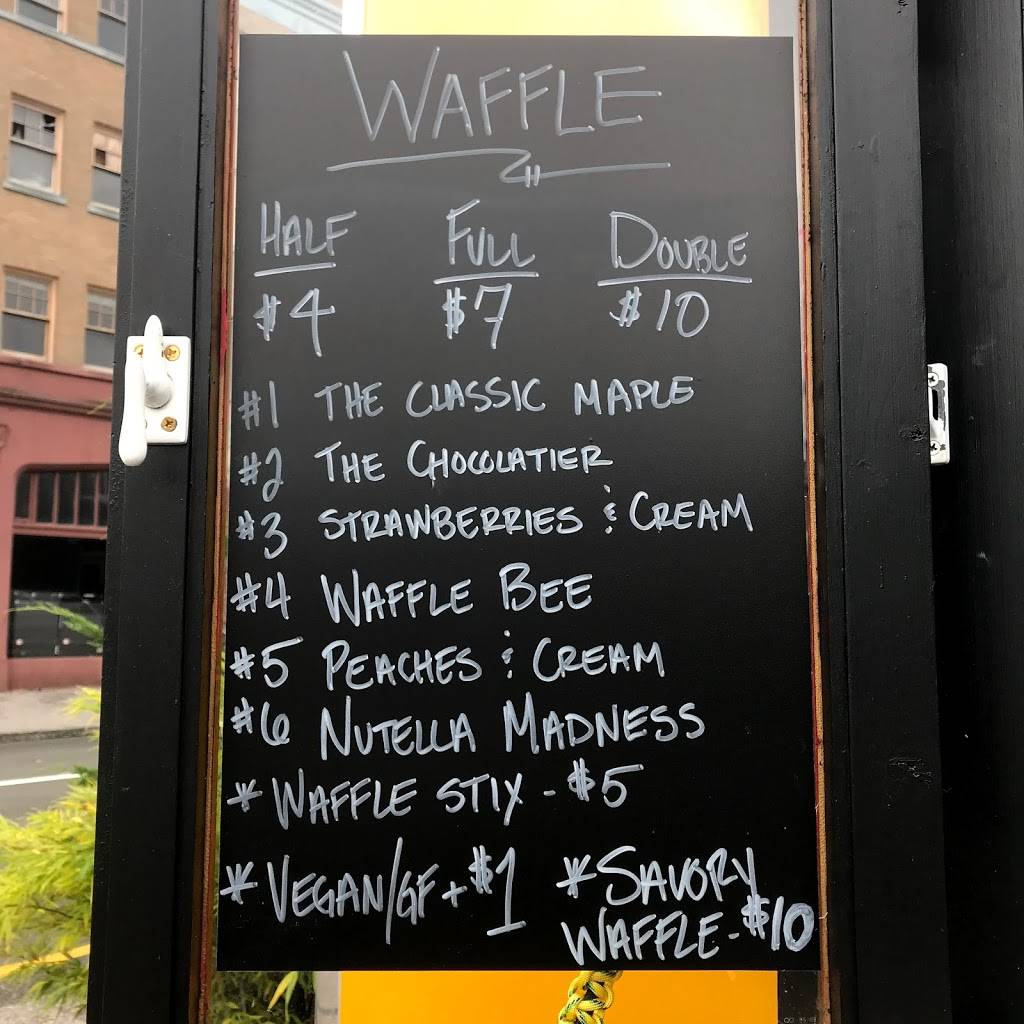 WAFFLE
HALF FULL DOUBLE
$4 $7 $10
#1 THE CLASSIC MAPLE
#2 THE CHOCOLATIER
#3 STRAWBERRIES & CREAM
#4 WAFFLE BEE
#5 PEACHES & CREAM
#6 NUTELLA MADNESS
* WAFFLE STIX - $5
* VEGAN/GF + $1
* SAVORY
WAFFLE - $10